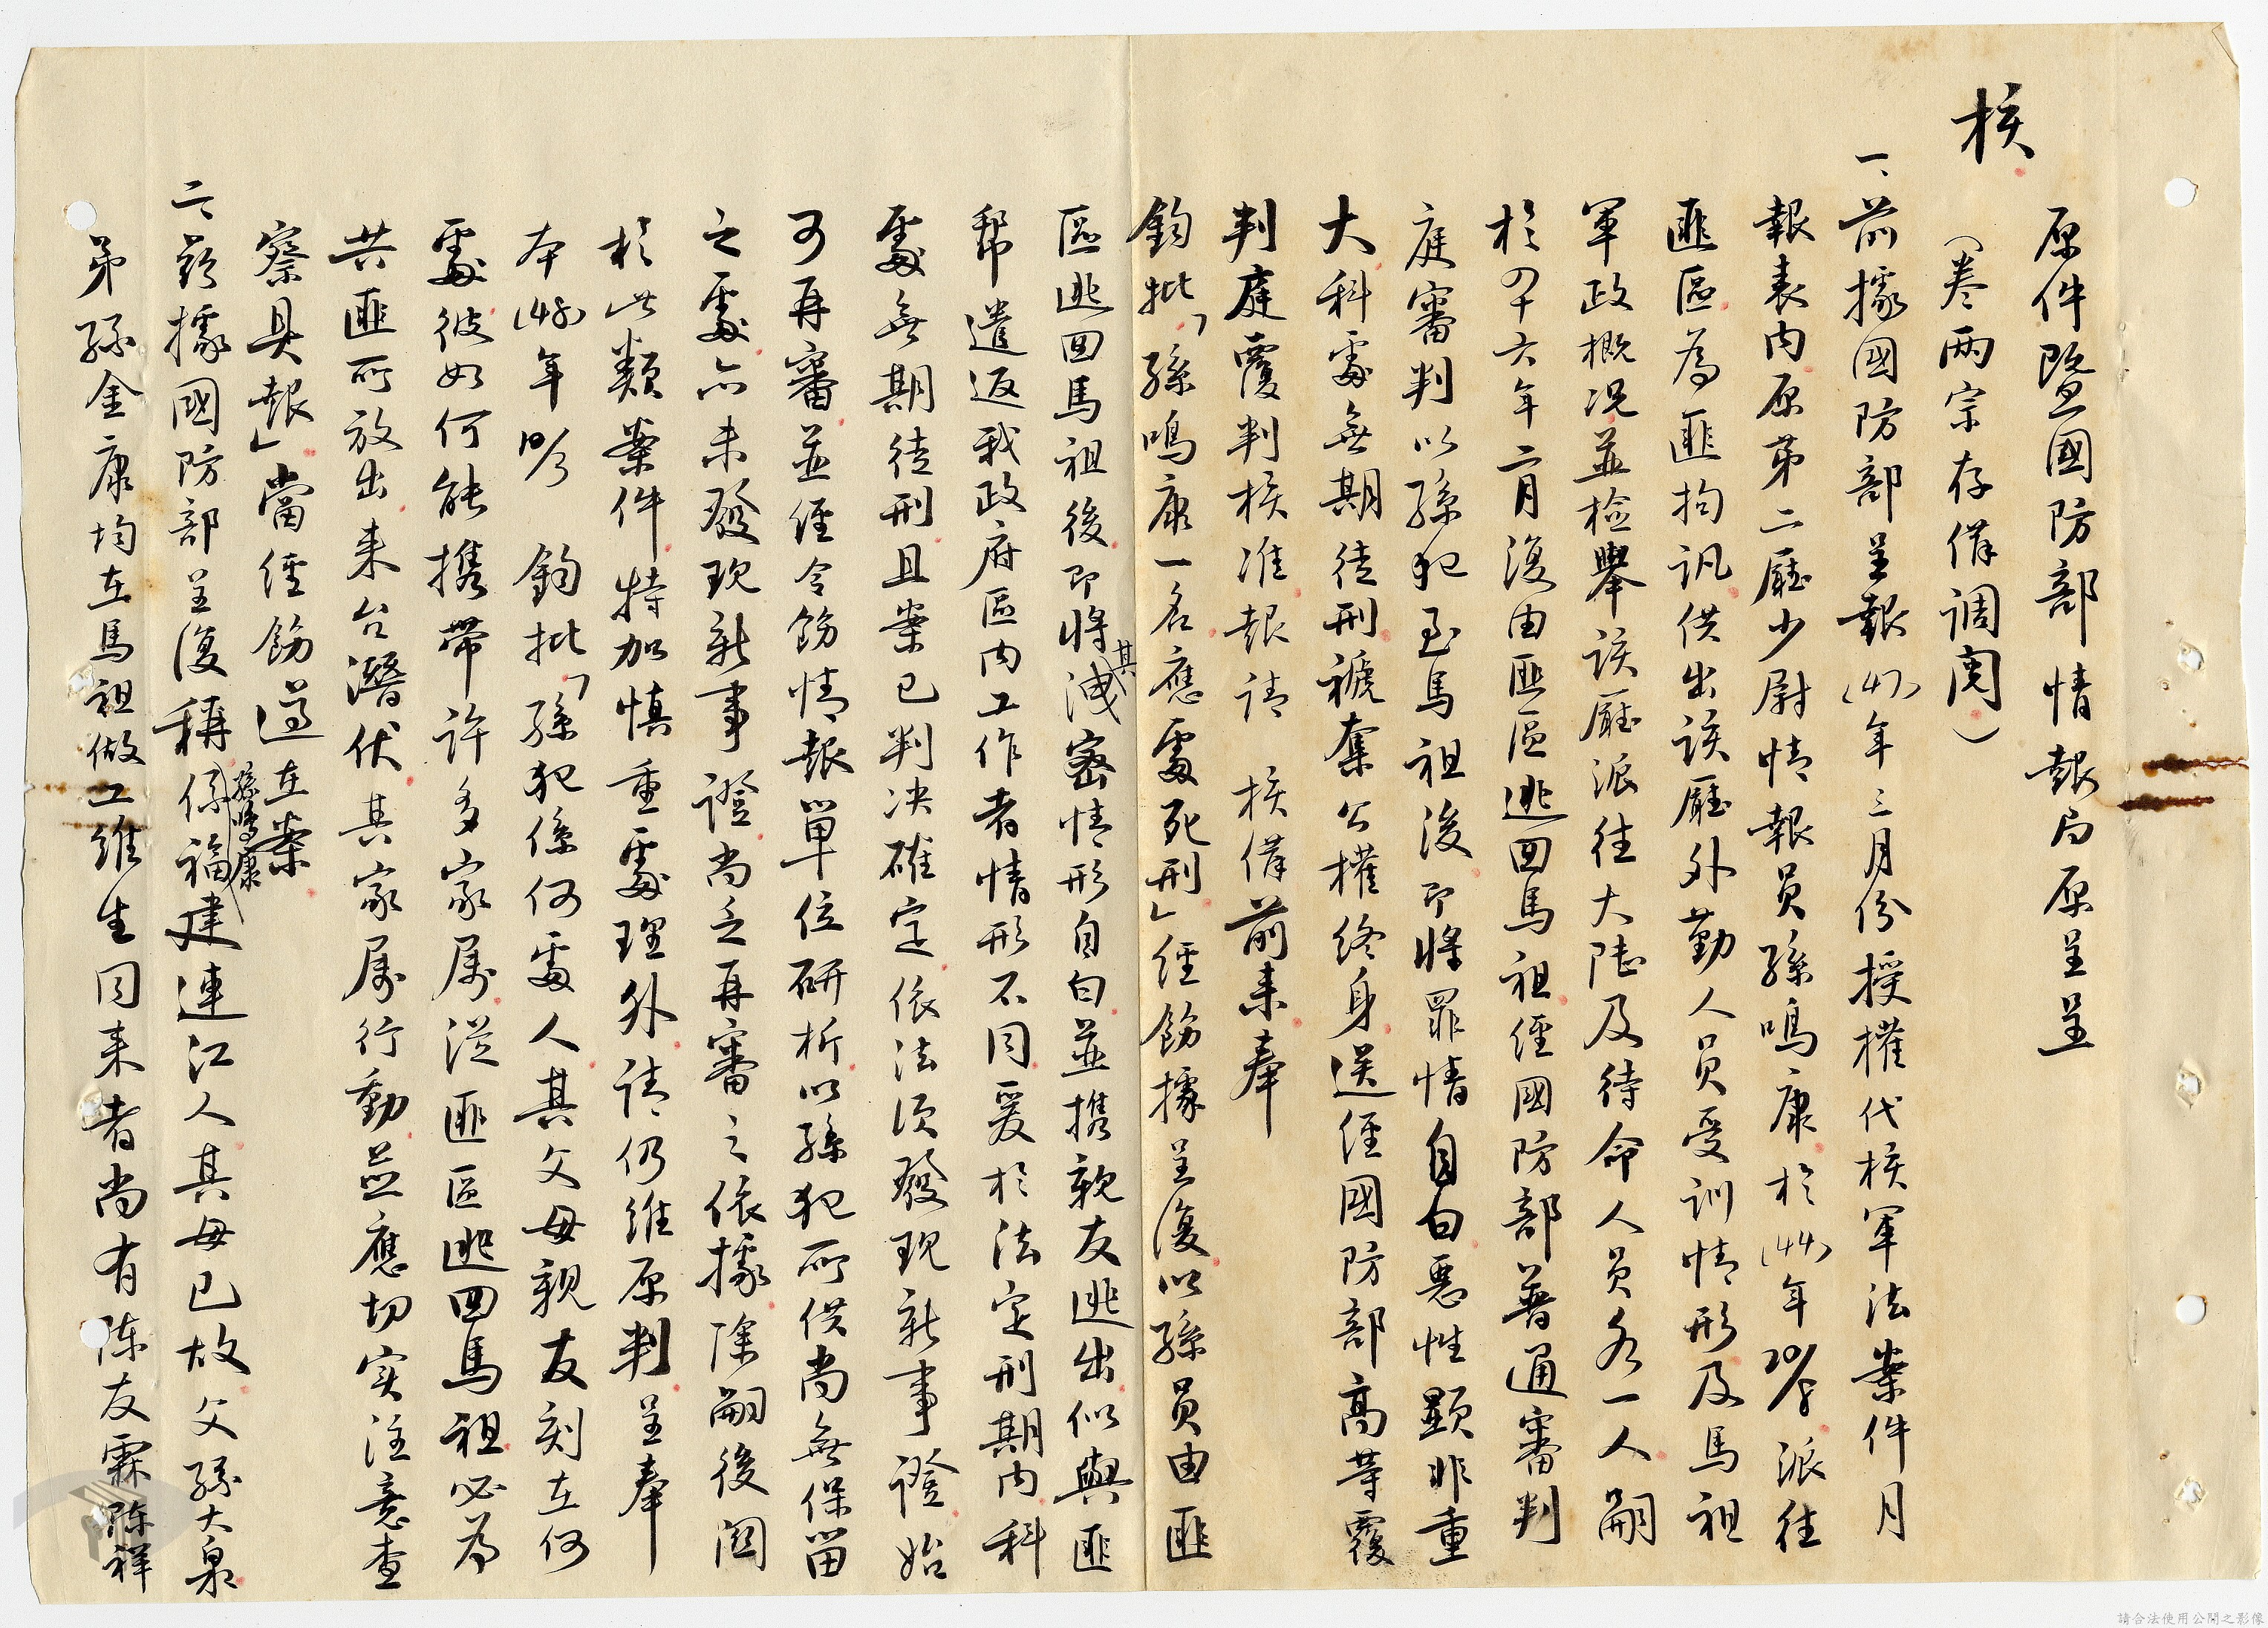 核
原件暨國防部情報局原呈呈
(卷兩宗存備調閱)
一、前據國防部呈報(47)年三月份授權代核軍法案件月
報表內原第二廳少尉情報員孫鳴康於(44)年 派往
匪區為匪拘訊供出該廳外勤人員受訓情形及馬祖
軍政概況並檢舉該廳派往大陸及待命人員各一人嗣
於四十六年二月復由匪區逃回馬祖經國防部普通審判
庭審判以孫犯至馬祖後即將罪情自白惡性顯非重
大科處無期徒刑褫奪公權終身送經國防部高等覆
判庭覆判核准報請 核備前來奉
鈞批「孫鳴康一名應處死刑」經飭據呈復以孫員由匪
區逃回馬祖後即將其洩密情形自白並携親友逃出似與匪
幫遣返我政府區內工作者情形不同爰於法定刑期內科
處無期徒刑且案已判決確定依法須發現新事證始
可再審並經令飭情報單位研析以孫犯所供尚無保留
之處亦未發現新事證尚乏再審之依據除嗣後関
於此類案件特加慎重處理外請仍維原判呈奉
本 年 鈞批「孫犯係何處人其父母親友刻在何
處彼如何能携帶許多家属從匪區逃回馬祖必為
共匪所放出来台潛伏其家属行動並應切实注意查
察具報」當經飭遵在案
二、玆據國防部呈復稱孫鳴康係福建連江人其母已故父孫大泉
弟孫金康均在馬祖做工維生同来者尚有陳友霖陈祥
請合法使用公開之影像